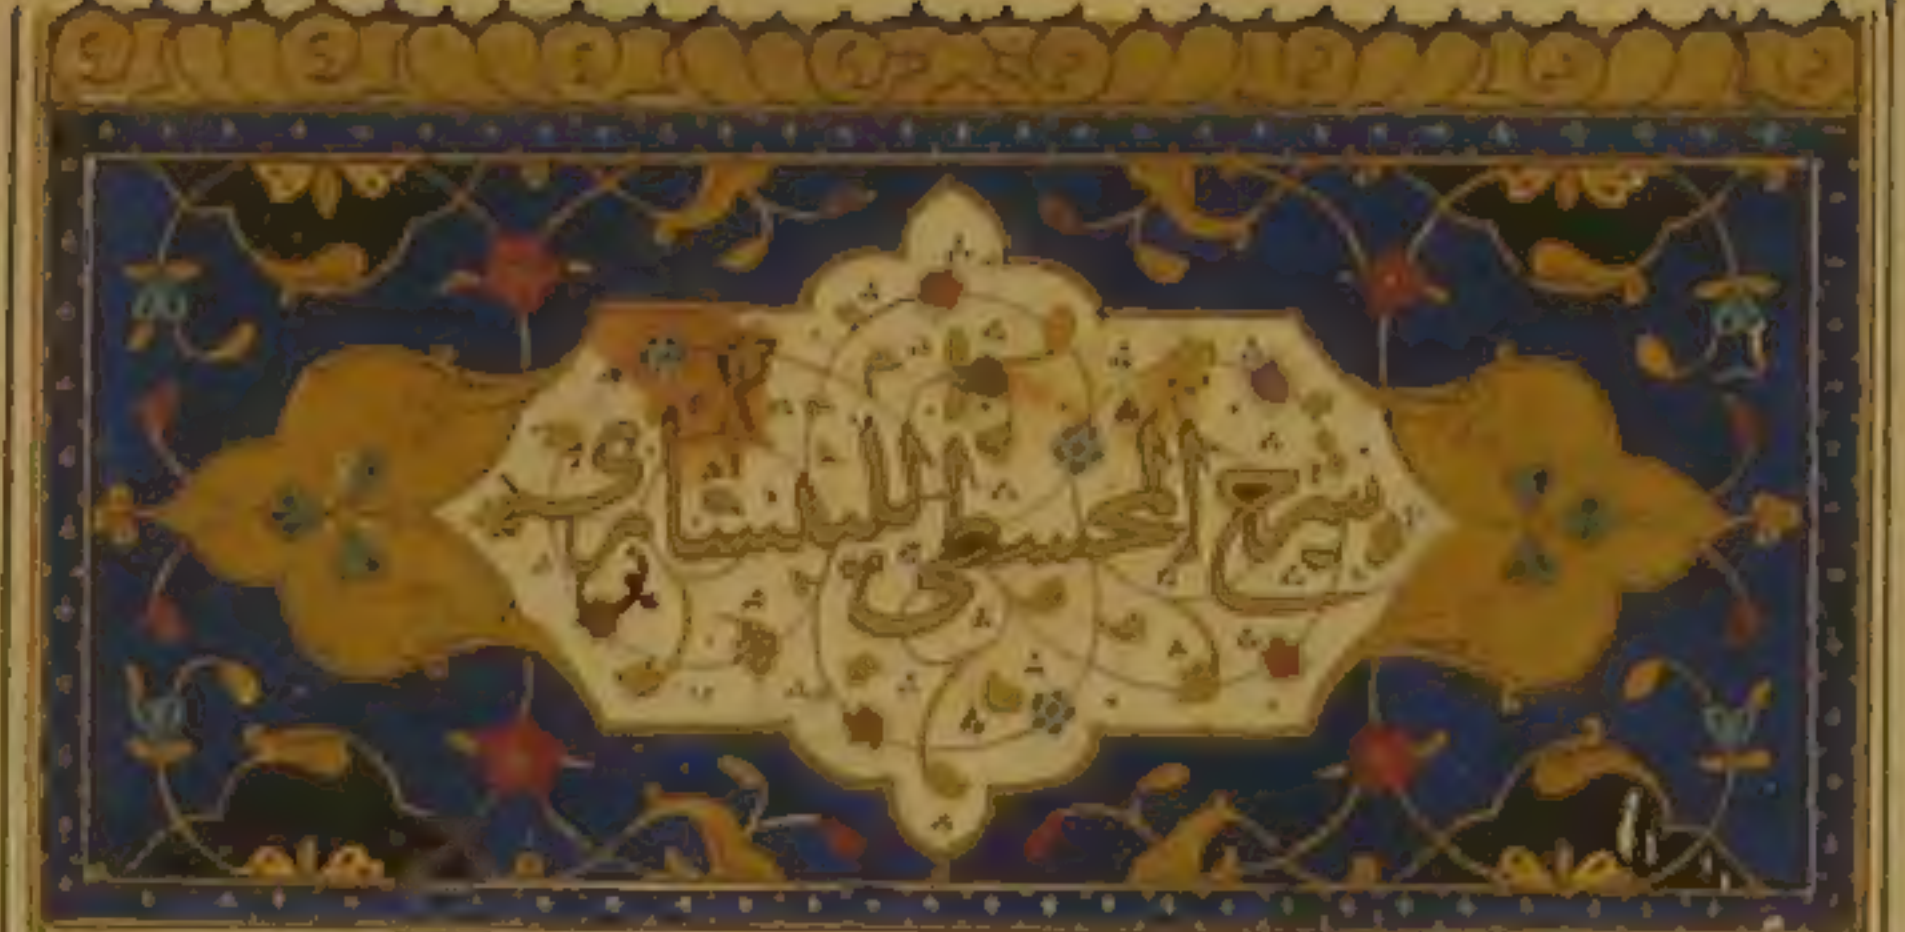 شرح المجسطى للنيسابورى